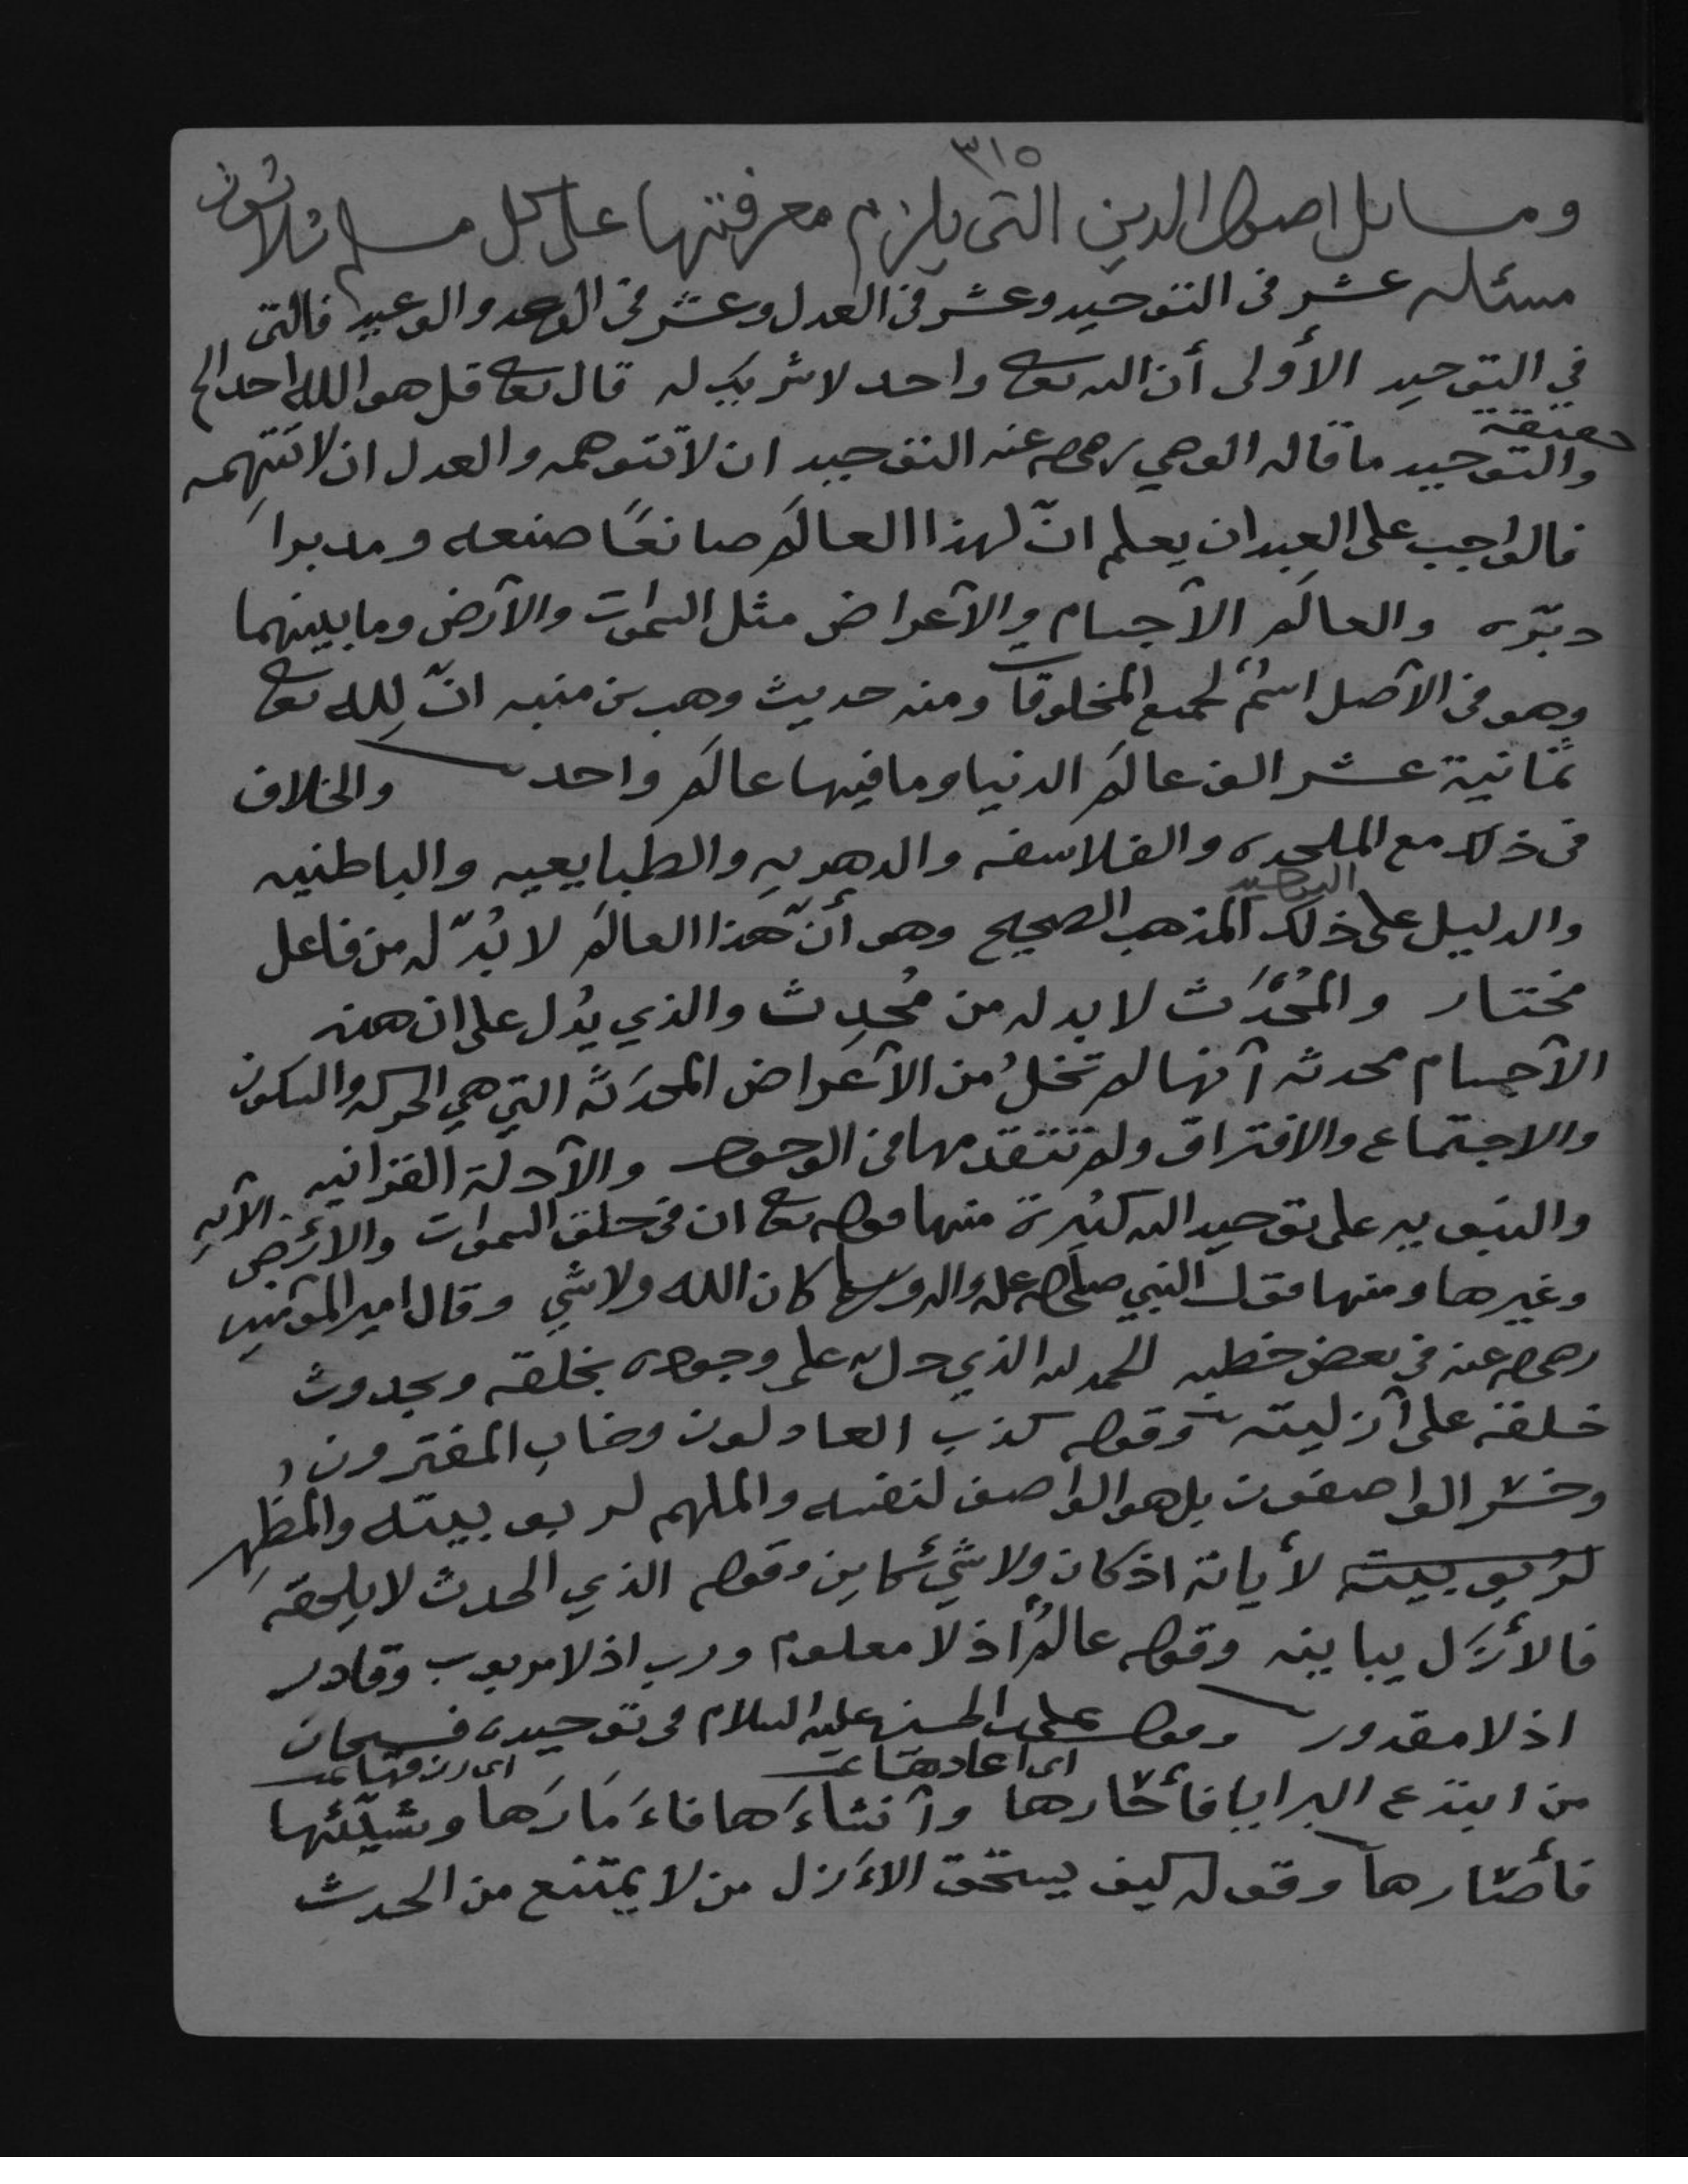 ٣١٥
ومسائل اصول الدين التي يلزم معرفتها على كل مسلم ثلاثون
مسئله عشر في التوحيد وعشر في العدل وعشر في الوعد والوعيد فالتي
في التوحيد الأولى أن الله تعا واحد لا شريك له قال تعا قل هو الله احد الخ
حقيقة
والتوحيد ما قاله الوصي رضي الله عنه التوحيد ان لا تتوهمه والعدل ان لا تتهمه
فالواجب على العبد ان يعلم انّ لهذا العالَم صانعًا صنعه ومدبرا
دبّره والعالَم الأجسام والأعراض مثل السموات والأرض وما بينهما
وهو في الأصل اسمٌ لجميع المخلوقات ومنه حديث وهب بن منبه انّ لِله تعا
ثمانية عشر الف عالَم الدنيا وما فيها عالَم واحد والخلاف
في ذلك مع الملحده والفلاسفه والدهريه والطبايعيه والباطنيه
والدليل على ذلك المذهب الصحيح وهو أنّ هذا العالَم لا بُدّ له من فاعل
مختار والمُحْدَث لا بد له من مُحدِث والذي يدُل على ان هذه
الأجسام محدثه أنها لم تخلُ من الأعراض المحدَثَة التي هي الحركه والسكون
والاجتماع والافتراق ولم تتقدمها في الوجود والأدلة القرانيه
والنبويه على توحيد الله كثيرة منها قوله تعا ان في خلق السموات والأرض الآيه
وغيرها ومنها قول النبي صلى الله عليه واله وسلم كان الله ولا شي وقال امير المؤمنين
رضي الله عنه في بعض خطبه الحمد لله الذي دل على وجوده بخلقه وبحدوث
خلقه على أزليته وقوله كذب العادلون وخاب المفترون و
وخسر الواصفون بل هو الواصف لنفسه والملهم لربوبيته والمظهِر
لربوبيته لأياته اذ كان ولا شيئ كاين وقوله الذي الحدث لا يلحقه
فالأزَل يباينه وقوله عالمٌ اذ لا معلوم ورب اذ لا مربوب وقادر
اذ لا مقدور وقول علي بن الحسين عليه السلام في توحيده فسبحان
اى اعادها تمت
من ابتدع البرايا فأحارها وأنشاءَها فاءَمَارَها وشيّئها
فأصارها وقوله كيف يستحق الاءَزل من لا يمتنع من الحدث